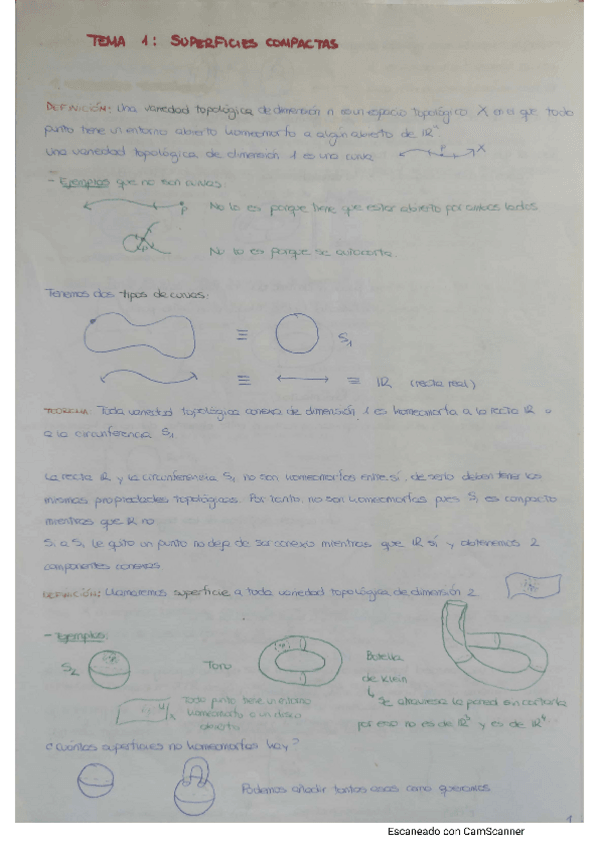 TEMA 1: SUPERFICIES COMPACTAS
DEFINICIÓN: Una variedad topológica de dimensión n es un espacio topológico X en el que todo
punto tiene un entorno abierto homeomorfo a algún abierto de ℝⁿ
Una variedad topológica de dimensión 1 es una curva
P X
- Ejemplos que no son curvas:
P No lo es porque tiene que estar abierto por ambos lados
No lo es porque se autocorta.
Tenemos dos tipos de curvas:
≡ S₁
≡ ≡ ℝ (recta real)
TEOREMA: Toda variedad topológica conexa de dimensión 1 es homeomorfa a la recta ℝ o
a la circunferencia S₁
La recta ℝ y la circunferencia S₁ no son homeomorfos entre sí, de serlo deben tener las
mismas propiedades topológicas. Por tanto, no son homeomorfos pues S₁ es compacto
mientras que ℝ no.
Si a S₁ le quito un punto no deja de ser conexo mientras que ℝ sí y obtenemos 2
componentes conexas
DEFINICIÓN: Llamaremos superficie a toda variedad topológica de dimensión 2
- Ejemplos:
S₂ Toro Botella
de Klein
Todo punto tiene un entorno
homeomorfo a un disco
abierto
Se atraviesa la pared sin cortarla
por eso no es de y es de ℝ⁴
¿Cuántas superficies no homeomorfas hay?
Podemos añadir tantas asas como queramos
1
Escaneado con CamScanner